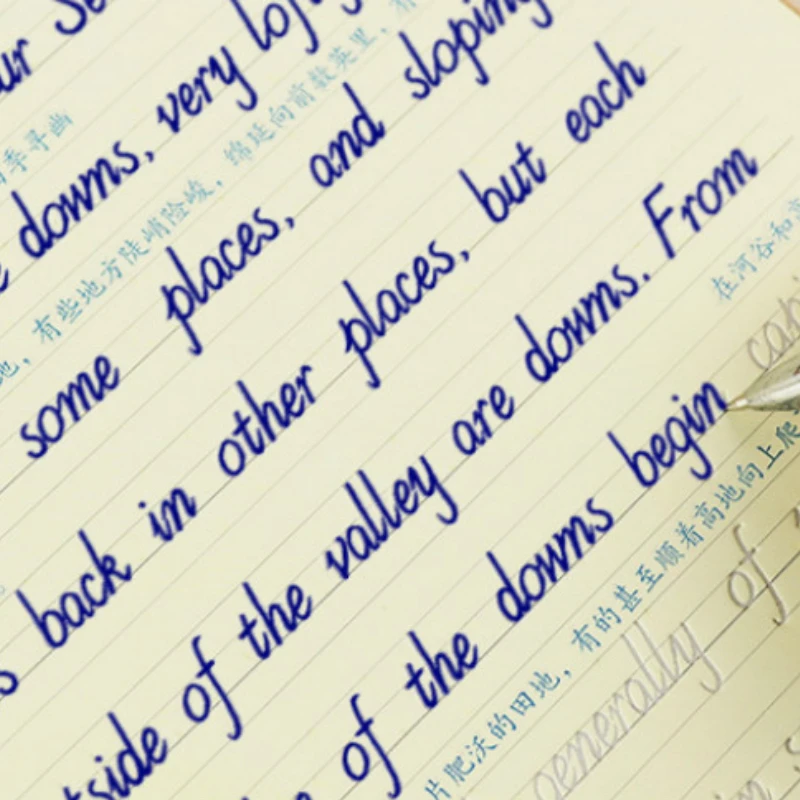 downs, very
有些地方陡峭险峻，绵延向前数英里，
some places, and sloping
back in other places, but each
side of the valley are downs. From
在河谷和
of the downs begin
片肥沃的田地，有的甚至顺着高地向上爬
generally of